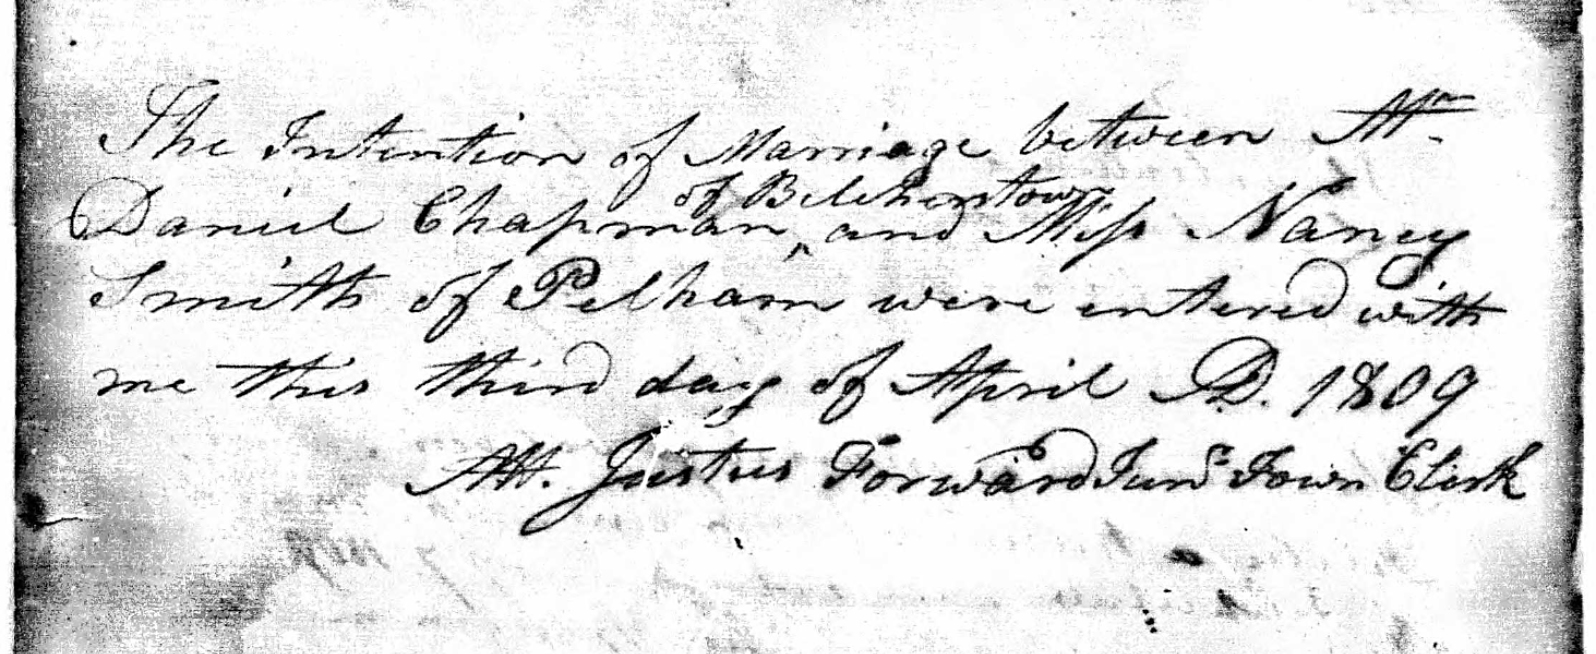 The Intention of Marriage between Mr.
Daniel Chapman ^ of Belcherstown and Miss Nancy
Smith of Pelham were entered with
me this third day of April AD. 1809
Att. Justus Forward Junr Town Clerk